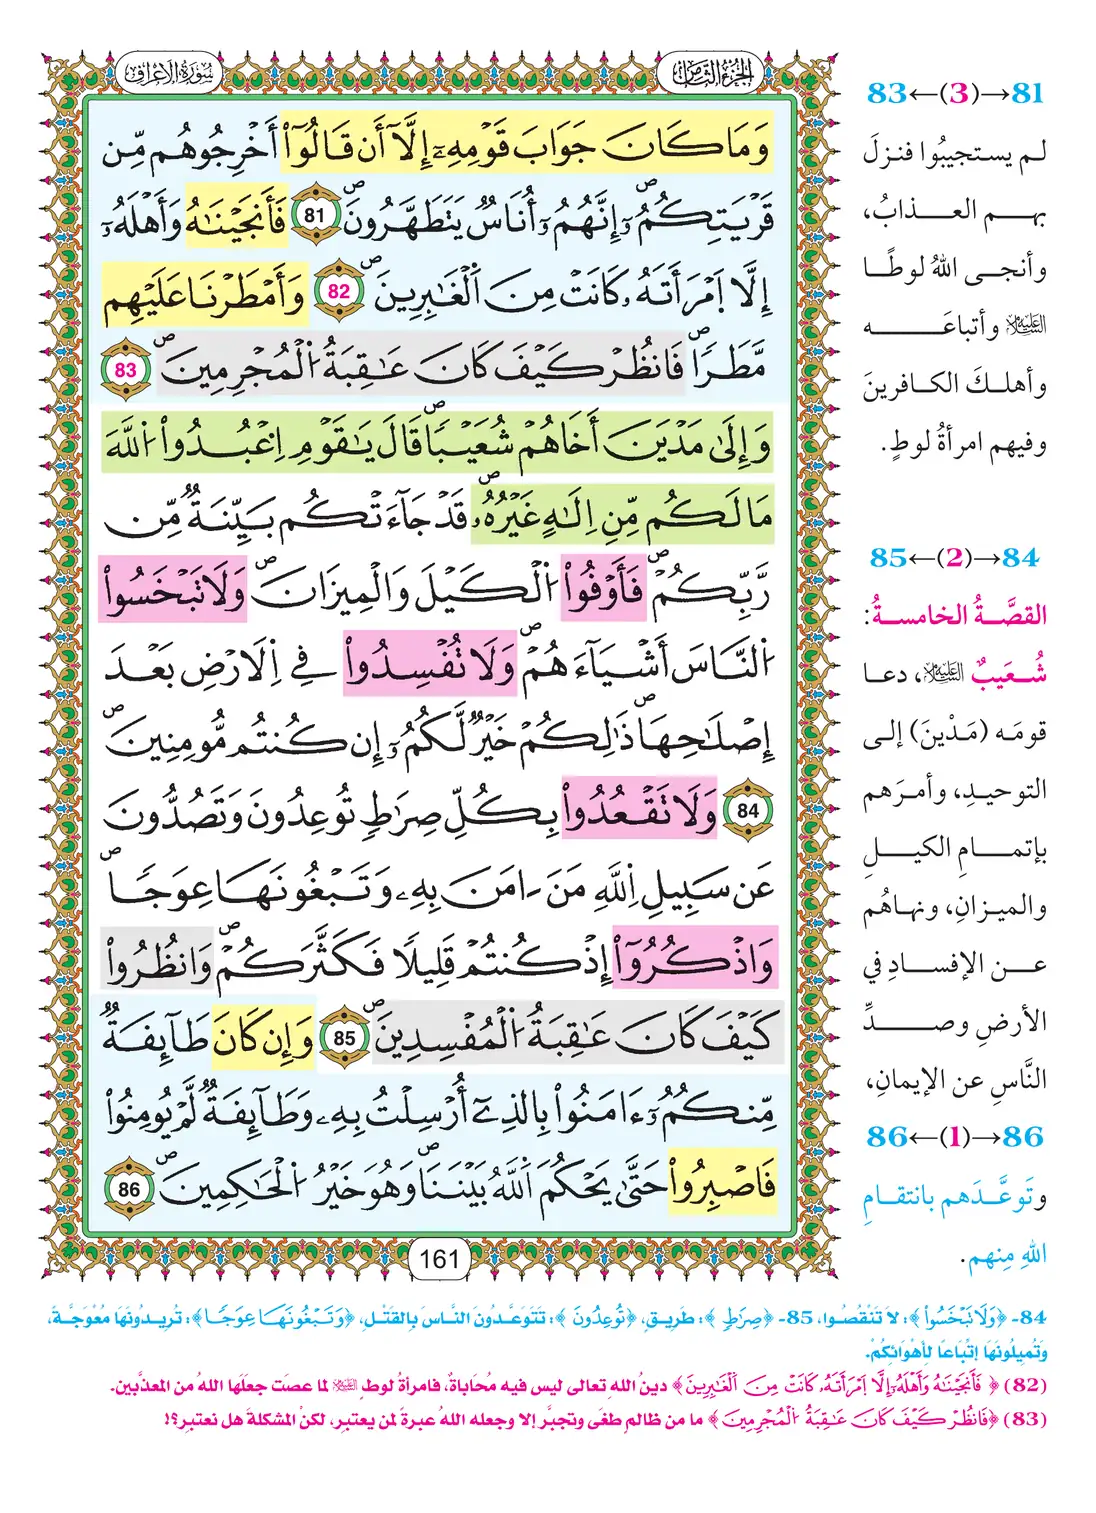 الجزء الثامن
سورة الأعراف
وَمَا كَانَ جَوَابَ قَوْمِهِۦٓ إِلَّآ أَن قَالُوٓاْ أَخْرِجُوهُم مِّن
قَرْيَتِكُمُۥٓۖ إِنَّهُمُۥٓ أُنَاسٞ يَتَطَهَّرُونَۖ 81 فَأَنجَيْنَٰهُ وَأَهْلَهُۥٓ
إِلَّا اَمْرَأَتَهُۥ كَانَتْ مِنَ اَلْغَٰبِرِينَۖ 82 وَأَمْطَرْنَا عَلَيْهِم
مَّطَراٗۖ فَانظُرْ كَيْفَ كَانَ عَٰقِبَةُ اُلْمُجْرِمِينَۖ 83
وَإِلَىٰ مَدْيَنَ أَخَاهُمْ شُعَيْباٗۖ قَالَ يَٰقَوْمِ اِعْبُدُواْ اُللَّهَ
مَا لَكُم مِّنِ اِلَٰهٍ غَيْرُهُۥۖ قَدْ جَآءَتْكُم بَيِّنَةٞ مِّن
رَّبِّكُمْۖ فَأَوْفُواْ اُلْكَيْلَ وَالْمِيزَانَۖ وَلَا تَبْخَسُواْ
اُلنَّاسَ أَشْيَآءَهُمْۖ وَلَا تُفْسِدُواْ فِے اِلَارْضِ بَعْدَ
إِصْلَٰحِهَاۖ ذَٰلِكُمْ خَيْرٞ لَّكُمُۥٓ إِن كُنتُم مُّومِنِينَۖ
84 وَلَا تَقْعُدُواْ بِكُلِّ صِرَٰطٖ تُوعِدُونَ وَتَصُدُّونَ
عَن سَبِيلِ اِللَّهِ مَنَ اٰمَنَ بِهِۦ وَتَبْغُونَهَا عِوَجاٗۖ
وَاذْكُرُوٓاْ إِذْ كُنتُمْ قَلِيلاٗ فَكَثَّرَكُمْۖ وَانظُرُواْ
كَيْفَ كَانَ عَٰقِبَةُ اُلْمُفْسِدِينَۖ 85 وَإِن كَانَ طَآئِفَةٞ
مِّنكُمُۥٓ ءَامَنُواْ بِالذِےٓ أُرْسِلْتُ بِهِۦ وَطَآئِفَةٞ لَّمْ يُومِنُواْ
فَاصْبِرُواْ حَتَّىٰ يَحْكُمَ اَللَّهُ بَيْنَنَاۖ وَهُوَ خَيْرُ اُلْحَٰكِمِينَۖ 86
161
81→(3)←83
لم يستجيبُوا فنزلَ
بهم العذابُ،
وأنجى اللهُ لوطًا
عليه السلام وأتباعَه
وأهلكَ الكافرينَ
وفيهم امرأةُ لوطٍ.
84→(2)←85
القصَّةُ الخامسةُ:
شُعَيبٌ عليه السلام، دعا
قومَه (مَدْينَ) إلى
التوحيدِ، وأمرَهم
بإتمامِ الكيلِ
والميزانِ، ونهاهُم
عن الإفسادِ في
الأرضِ وصدِّ
النَّاسِ عن الإيمانِ،
86→(1)←86
وتَوعَّدَهم بانتقامِ
اللهِ مِنهم.
84- ﴿وَلَا تَبْخَسُواْ﴾: لَا تَنْقُصُوا، 85- ﴿صِرَٰطٖ﴾: طَرِيقٍ، ﴿تُوعِدُونَ﴾: تَتَوَعَّدُونَ النَّاسَ بِالقَتْلِ، ﴿وَتَبْغُونَهَا عِوَجاٗ﴾: تُرِيدُونَهَا مُعْوَجَّةً،
وَتُمِيلُونَهَا اِتِّبَاعًا لِأَهْوَائِكُمْ.
(82) ﴿فَأَنجَيْنَٰهُ وَأَهْلَهُۥٓ إِلَّا اَمْرَأَتَهُۥ كَانَتْ مِنَ اَلْغَٰبِرِينَ﴾ دينُ اللهِ تعالى ليس فيه مُحَاباةٌ، فامرأةُ لوطٍ عليه السلام لما عصَت جعلَها اللهُ من المعذَّبين.
(83) ﴿فَانظُرْ كَيْفَ كَانَ عَٰقِبَةُ اُلْمُجْرِمِينَ﴾ ما من ظالمٍ طغَى وتجبَّر إلا وجعله اللهُ عبرةً لمن يعتبر، لكنْ المشكلةَ هل نعتبر؟!